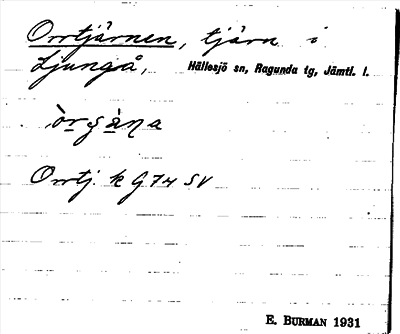 Orrtjärnen, tjärn i
Ljungå, Hällesjö sn, Ragunda tg, Jämtl. l.
Orrtj. k G74 SV
E. BURMAN 1931